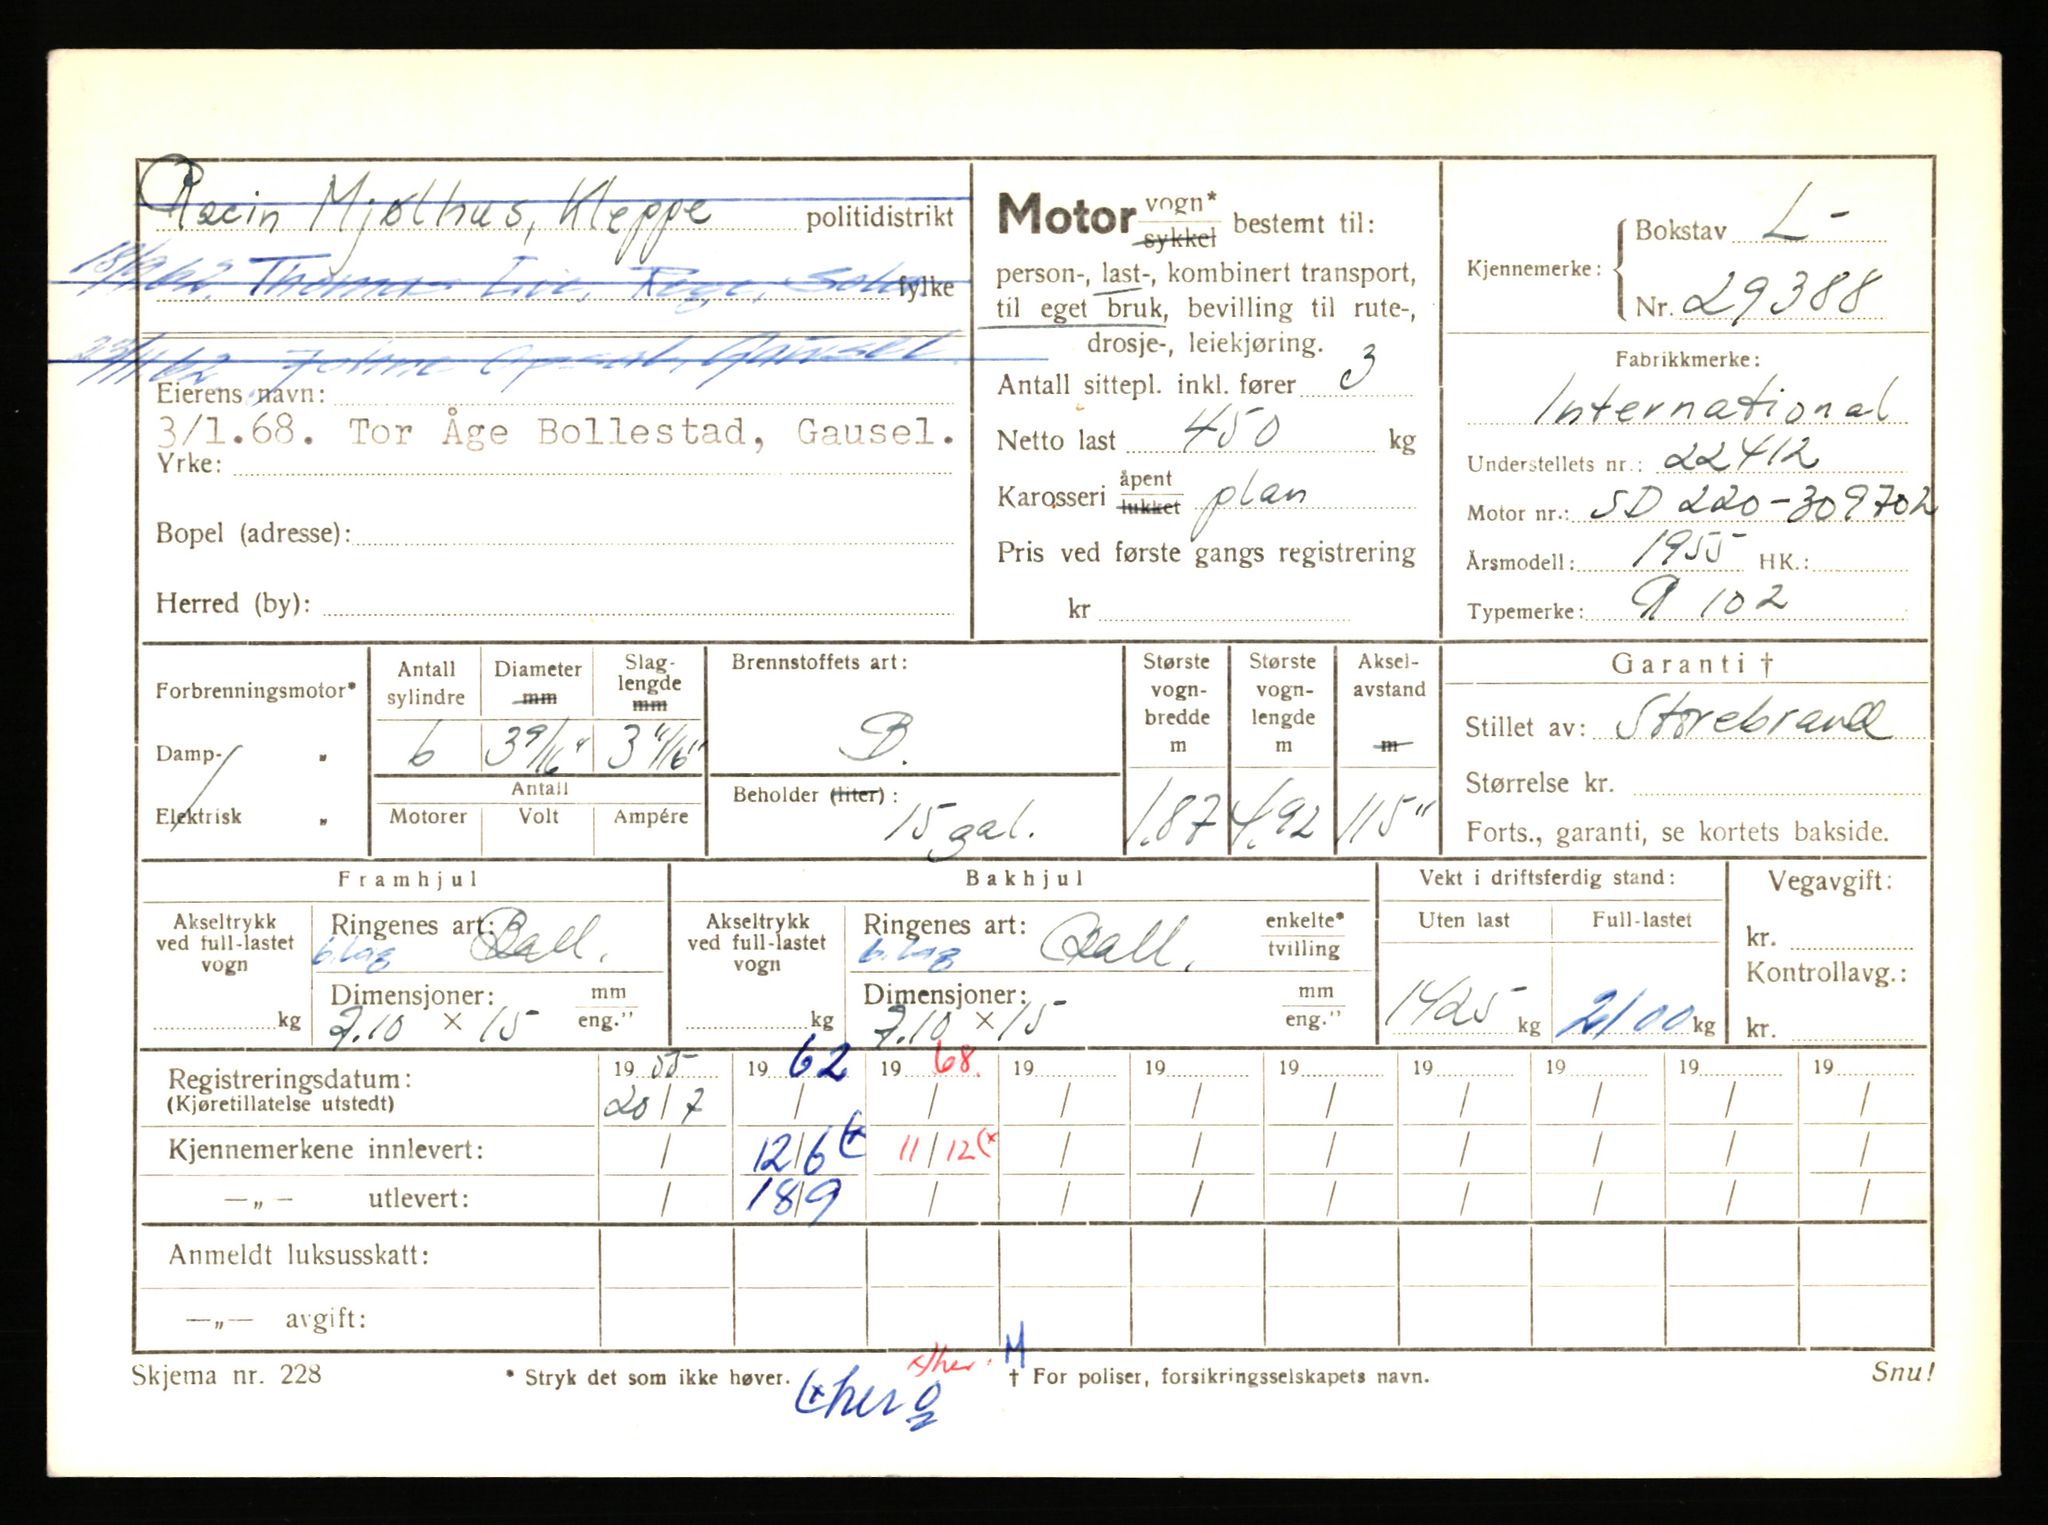 Mjølhus, Kleppe politidistrikt
18/9 62. Thomas Lie, Rege, Sola fylke
23/11 62 Gausel
Eierens navn:
3/1.68. Tor Åge Bollestad, Gausel.
Yrke:
Bopel (adresse):
Herred (by):
Motor vogn* / sykkel bestemt til:
person-, last-, kombinert transport,
til eget bruk, bevilling til rute-,
drosje-, leiekjøring.
Antall sittepl. inkl. fører 3
Netto last 450 kg
Karosseri åpent / lukket plan
Pris ved første gangs registrering
kr
Kjennemerke: Bokstav L-
Nr. 29388
Fabrikkmerke:
International
Understellets nr.: 22412
Motor nr.: SD 220-309702
Årsmodell: 1955 HK.:
Typemerke: R 102
Forbrenningsmotor*
Damp- "
Elektrisk "
Antall sylindre 6
Diameter mm 3 9/16"
Slag-lengde mm 3 11/16"
Antall
Motorer Volt Ampére
Brennstoffets art:
B.
Beholder (liter):
15 gal.
Største vogn-bredde m 1.87
Største vogn-lengde m 4.92
Aksel-avstand m 115"
Garanti †
Stillet av: Storebrand
Størrelse kr.
Forts., garanti, se kortets bakside.
Framhjul
Akseltrykk ved full-lastet vogn kg
Ringenes art: Ball.
6. lag
Dimensjoner: mm / eng."
7.10 x 15
Bakhjul
Akseltrykk ved full-lastet vogn kg
Ringenes art: Ball. enkelte* / tvilling
6. lag
Dimensjoner: mm / eng."
7.10 x 15
Vekt i driftsferdig stand:
Uten last Full-lastet
1425 kg 2100 kg
Vegavgift:
kr.
Kontrollavg.:
kr.
Registreringsdatum: 19 55 19 62 19 68. 19 19 19 19 19 19 19
(Kjøretillatelse utstedt) 20/7 / / / / / / / / /
Kjennemerkene innlevert: / 12/6 (x 11/12 (x / / / / / / /
—„— utlevert: / 18/9 / / / / / / / /
Anmeldt luksusskatt:
—„— avgift:
x/her. M
Skjema nr. 228 * Stryk det som ikke høver. † For poliser, forsikringsselskapets navn. Snu!
(x her